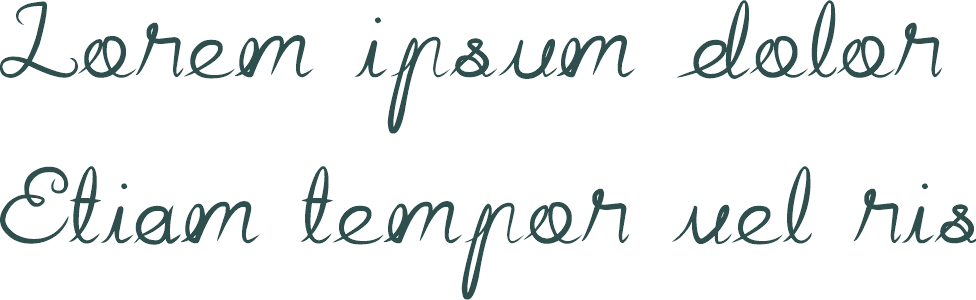 Lorem ipsum dolor
Etiam tempor vel ris